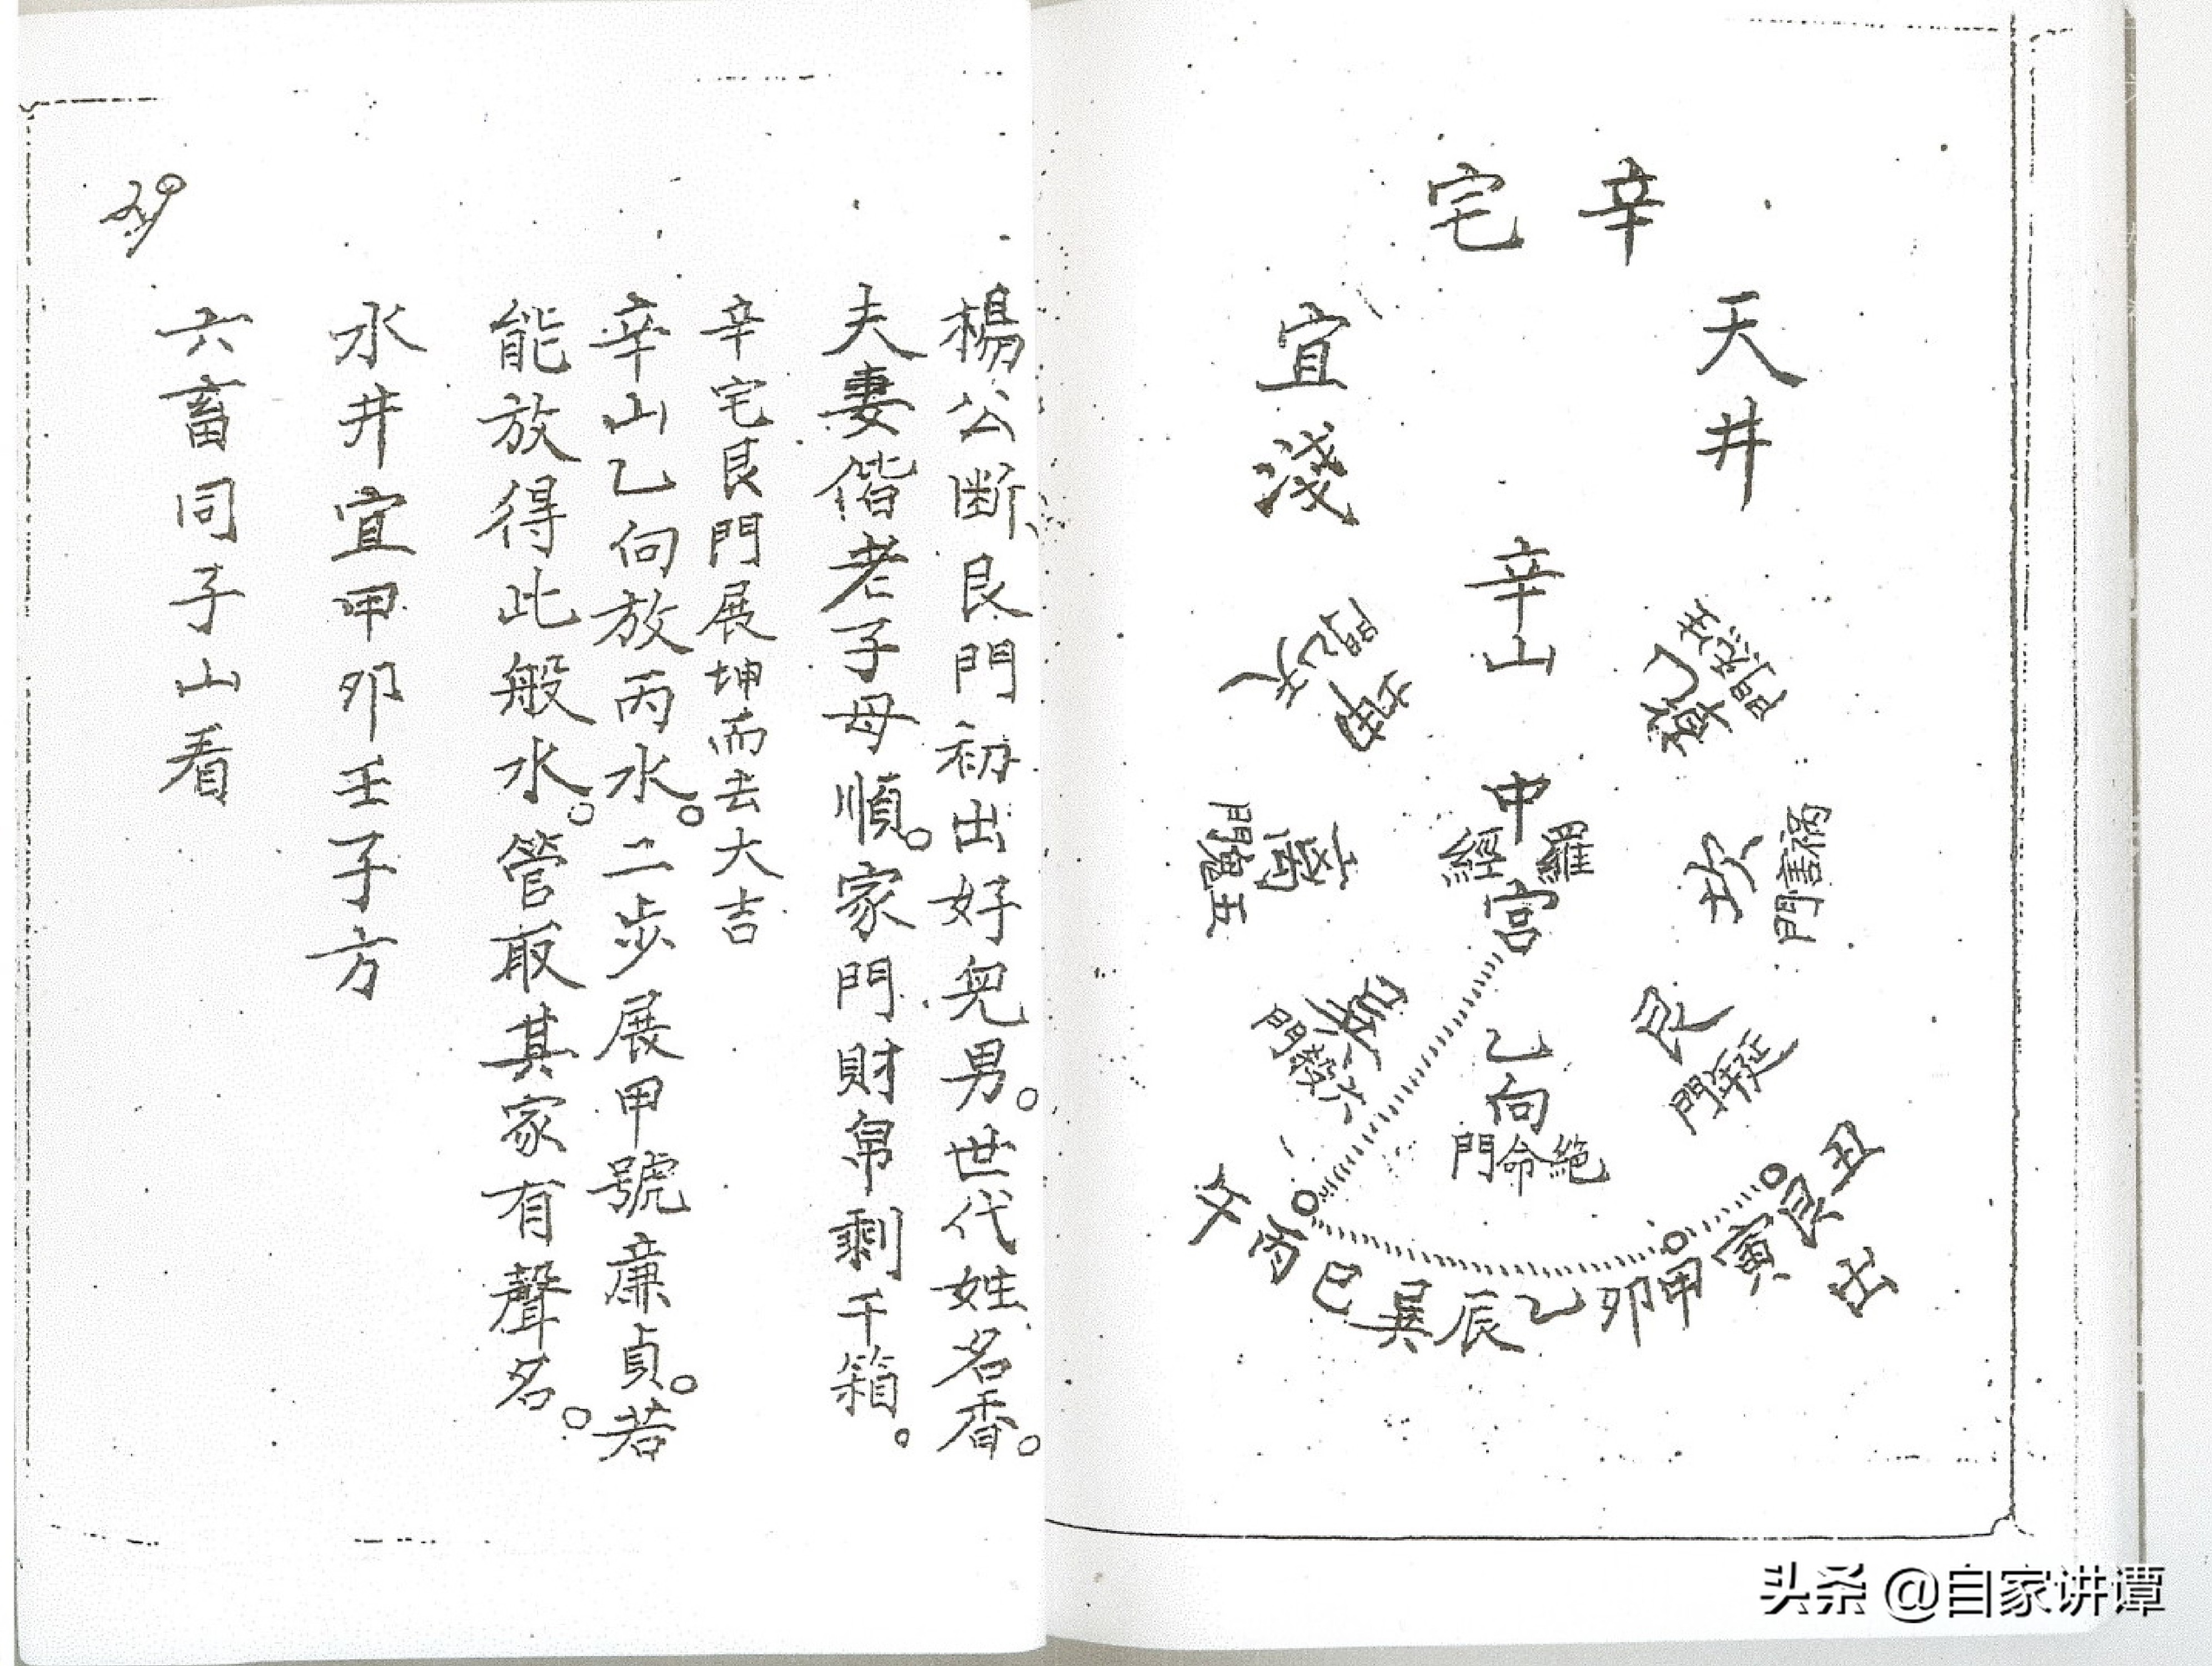 辛宅
天井
宜淺
辛山
中宮
羅經
乾
坎
禍害門
艮
延年門
乙向
絕命門
巽
六煞門
离
五鬼門
坤
天乙門
丑艮寅甲卯乙辰巽巳丙午
出
楊公断艮門初出好兒男。世代姓名香。
夫妻偕老子母順。家門財帛剩千箱。
辛宅艮門展坤而去大吉
辛山乙向放丙水。二步展甲號廉貞。若
能放得此般水。管取其家有聲名。
水井宜甲卯壬子方
六畜同子山看
头条 @自家讲谭